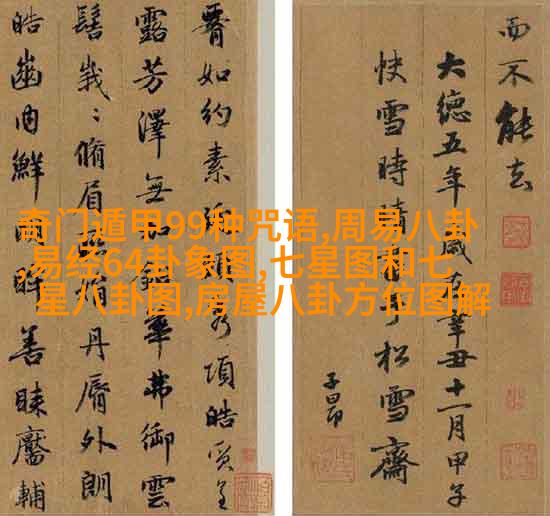 奇门遁甲99种咒语,周易八卦
,易经64卦象图,七星图和七
星八卦图,房屋八卦方位图解
肩如約素頸秀項皓質呈
露芳澤無加鉛華弗御雲
髻峩〻脩眉娟丹脣外朗
皓齒内鮮眸善睞靨輔
而不能去
大德五年歲在辛丑十一月甲子
快雪時晴于松雪齋
子昂